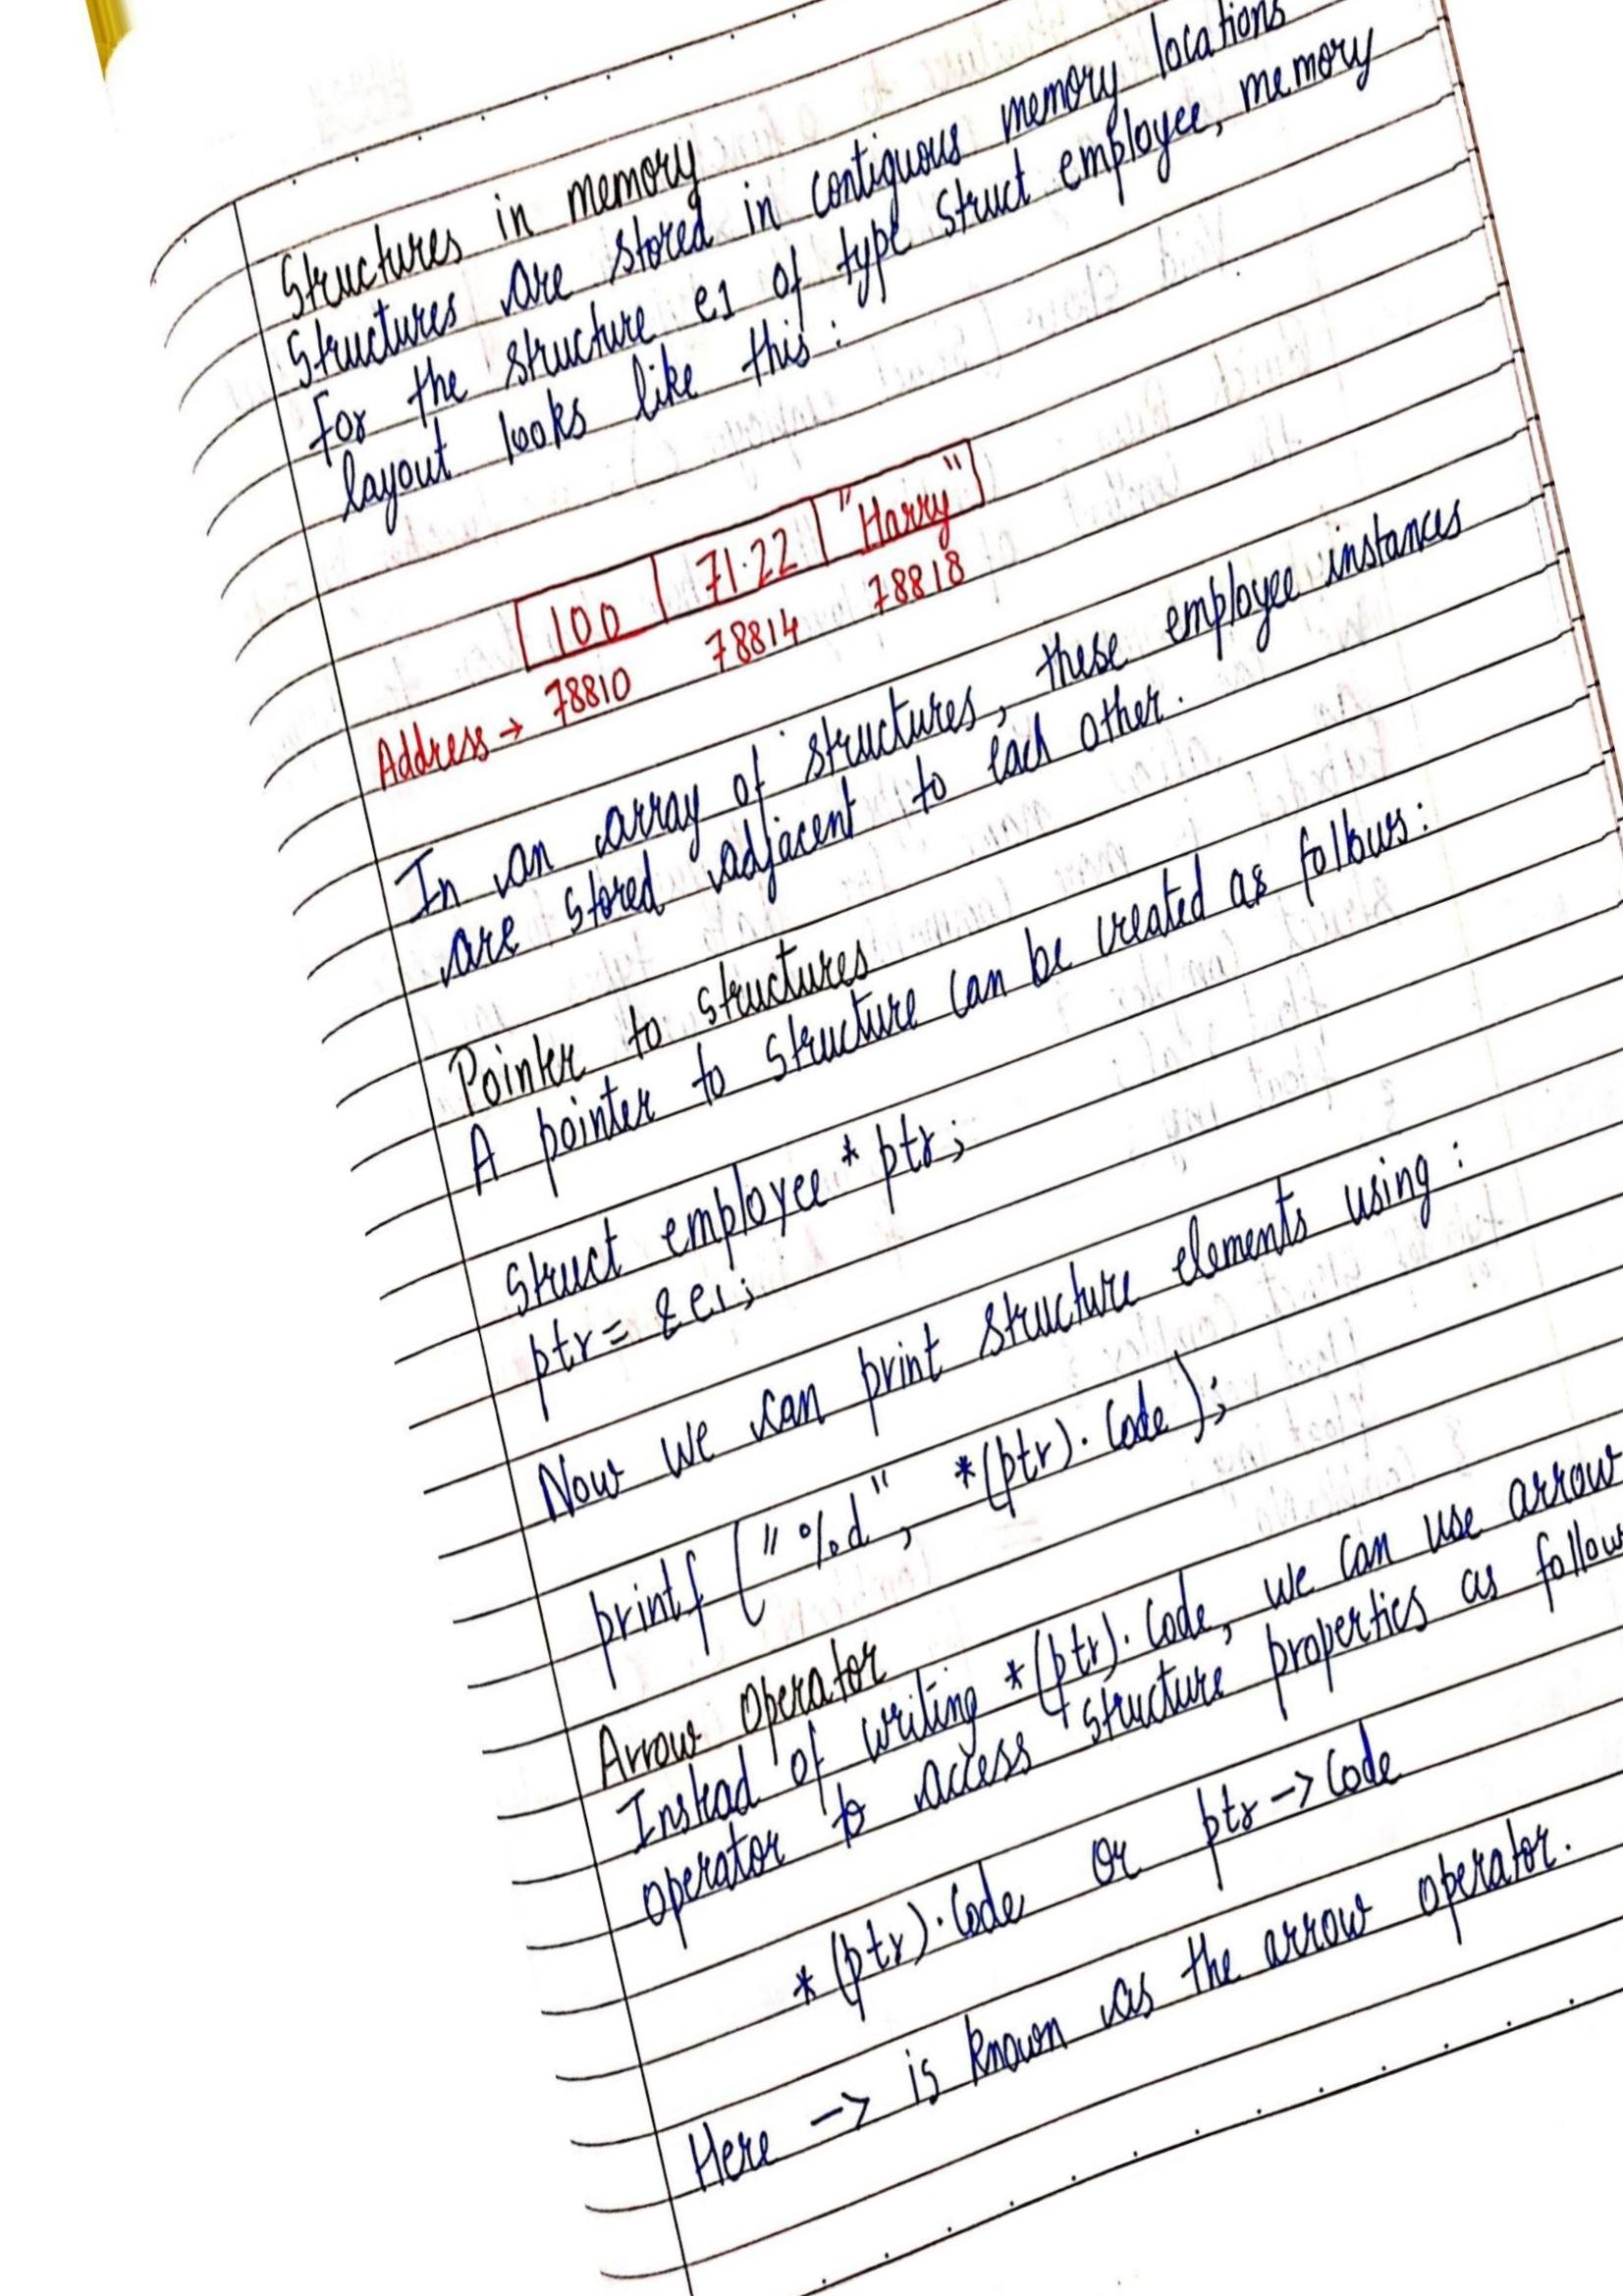 Structures in memory
Structures are stored in contiguous memory locations
For the structure e1 of type struct employee, memory
layout looks like this :
100 71.22 "Harry"
Address → 78810 78814 78818
In an array of structures, these employee instances
are stored adjacent to each other.
Pointer to structures
A pointer to structure can be created as follows :
Struct employee * ptr;
ptr = &e1;
Now we can print structure elements using :
printf ("%d", *(ptr).Code);
Arrow Operator
Instead of writing *(ptr).Code, we can use arrow
operator to access structure properties as follow
*(ptr).Code or ptr->Code
Here -> is known as the arrow operator.